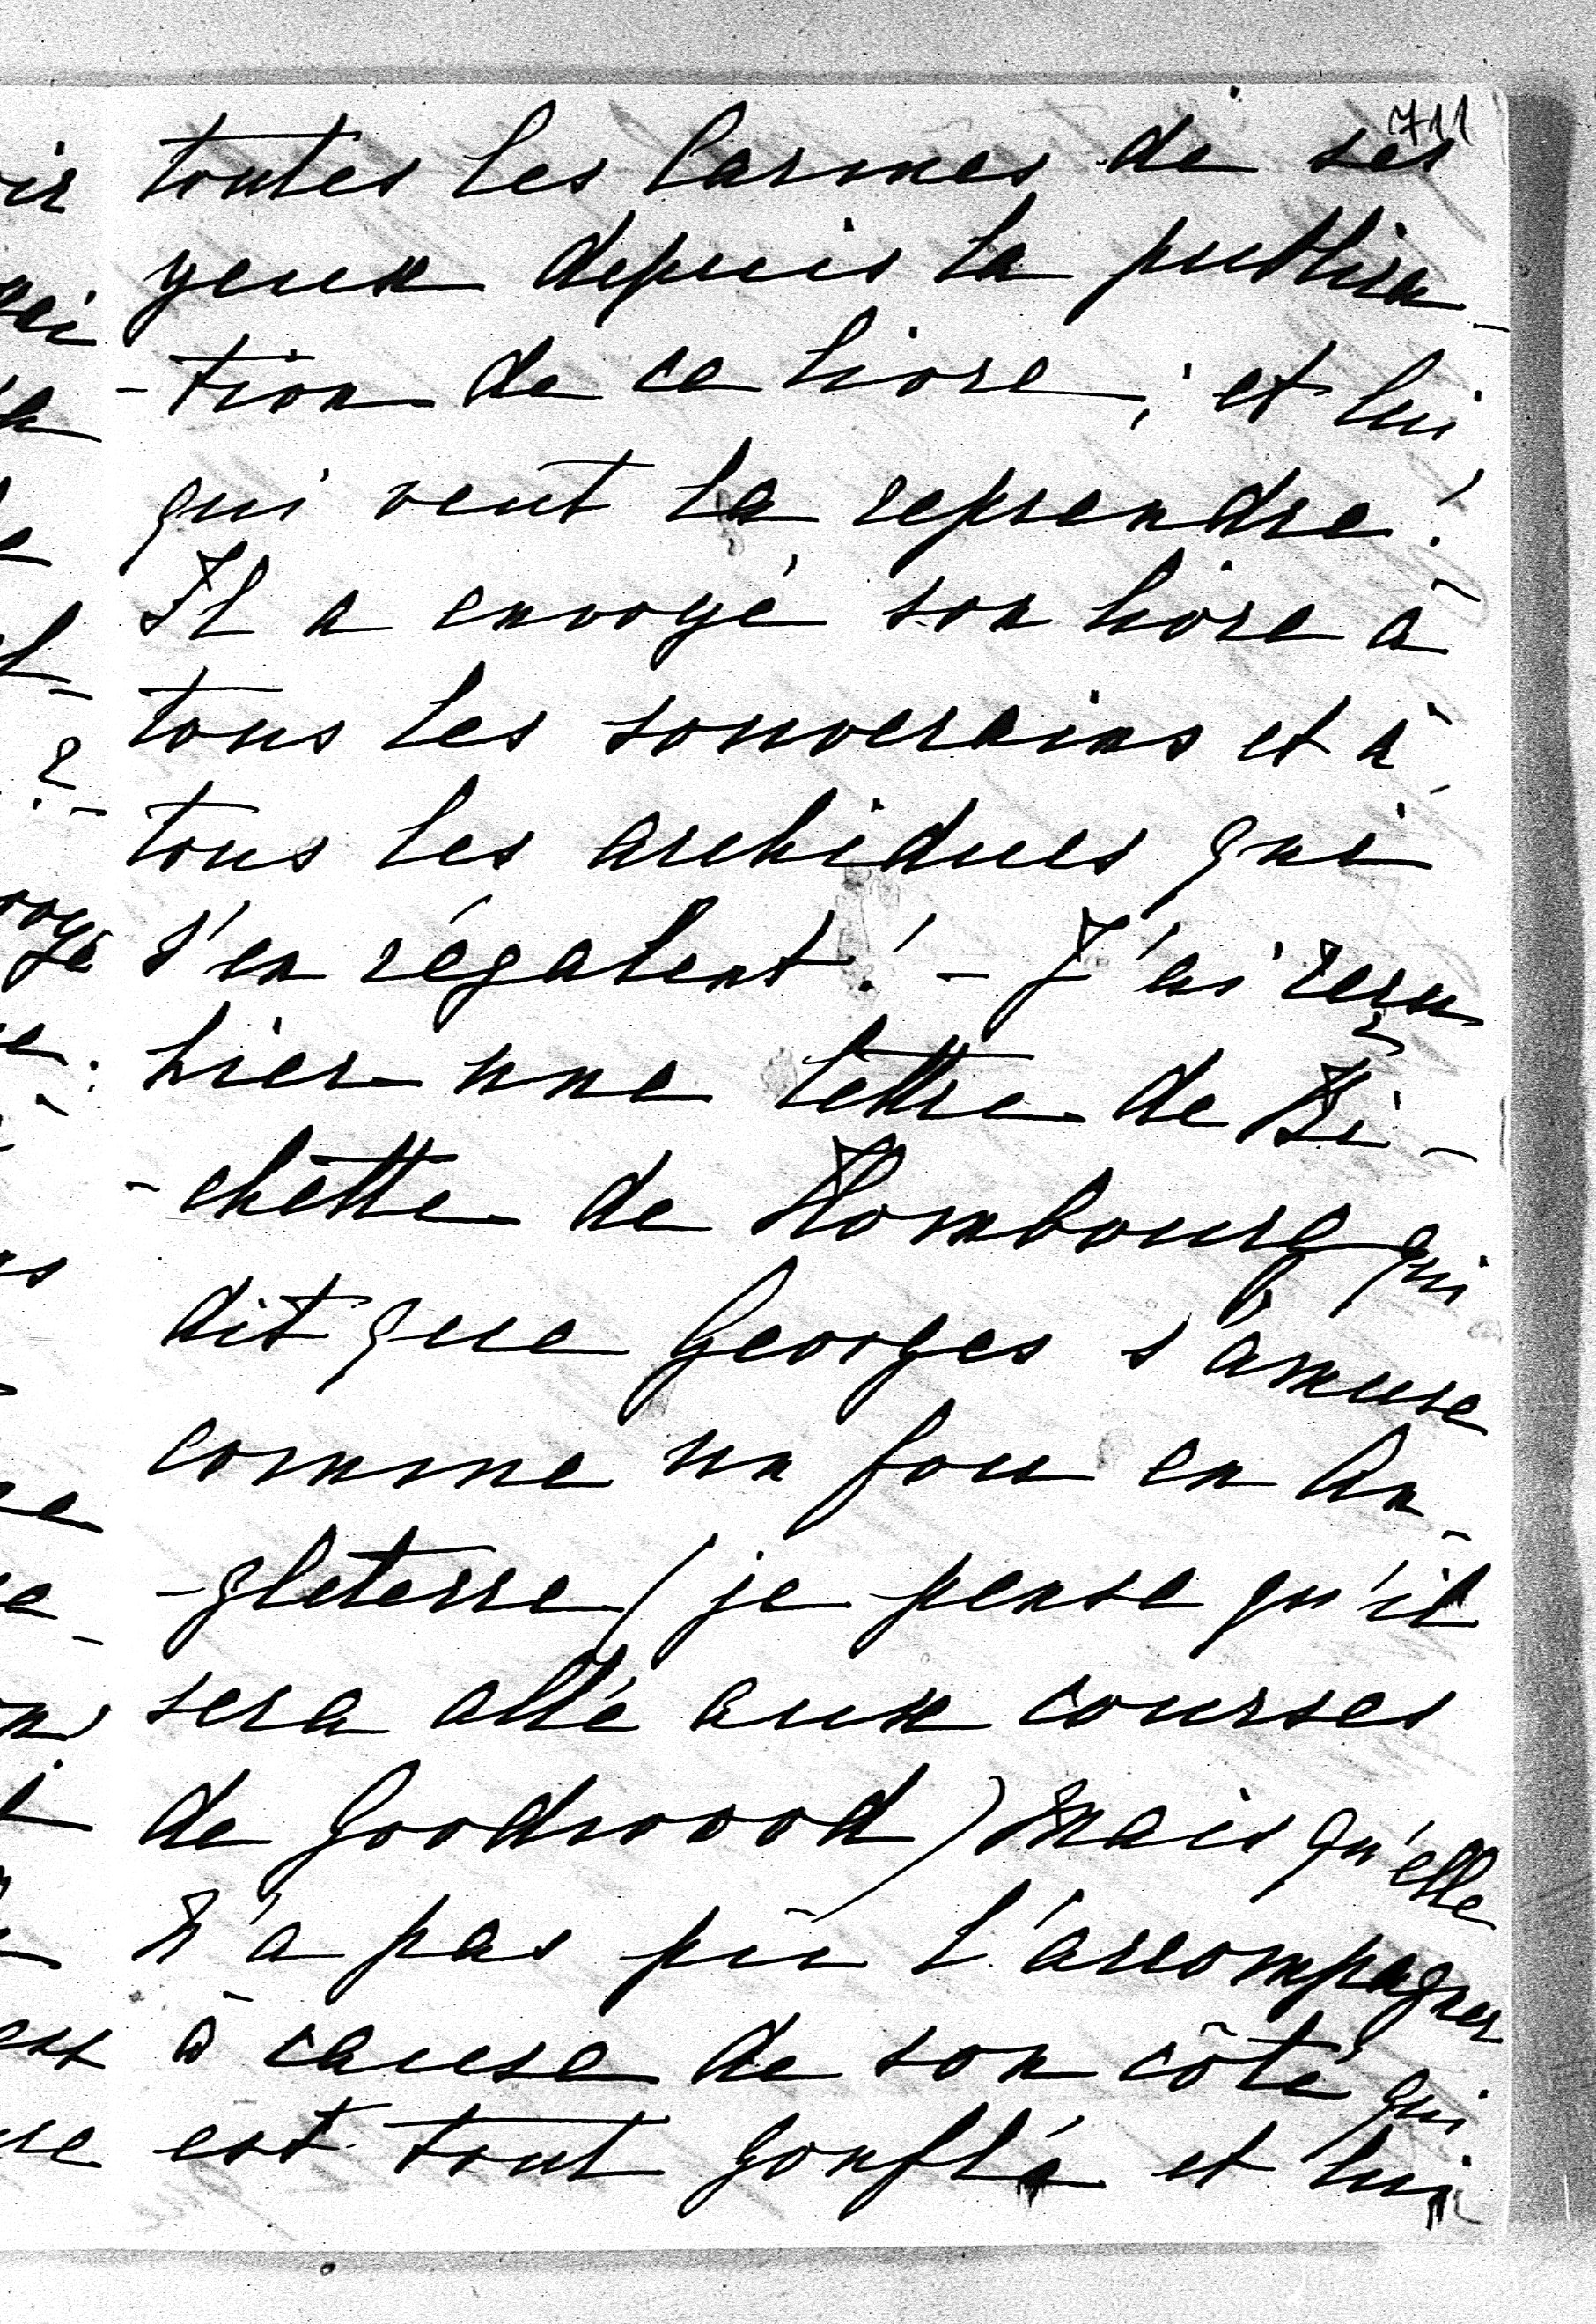 711
toutes les larmes de ses
yeux depuis la publica-
-tion de ce livre ; et lui
qui veut la reprendre !
Il a envoyé son livre à
tous les souverains et à
tous les archiducs qui
s'en régalent ! - J'ai reçu
hier une lettre de Bi-
-chette de Hombourg qui
dit que Georges s'amuse
comme un fou en An-
-gleterre (je pense qu'il
sera allé aux courses
de Goodwood) mais qu'elle
n'a pas pû l'accompagner
à cause de son côté qui
est tout gonflé et lui